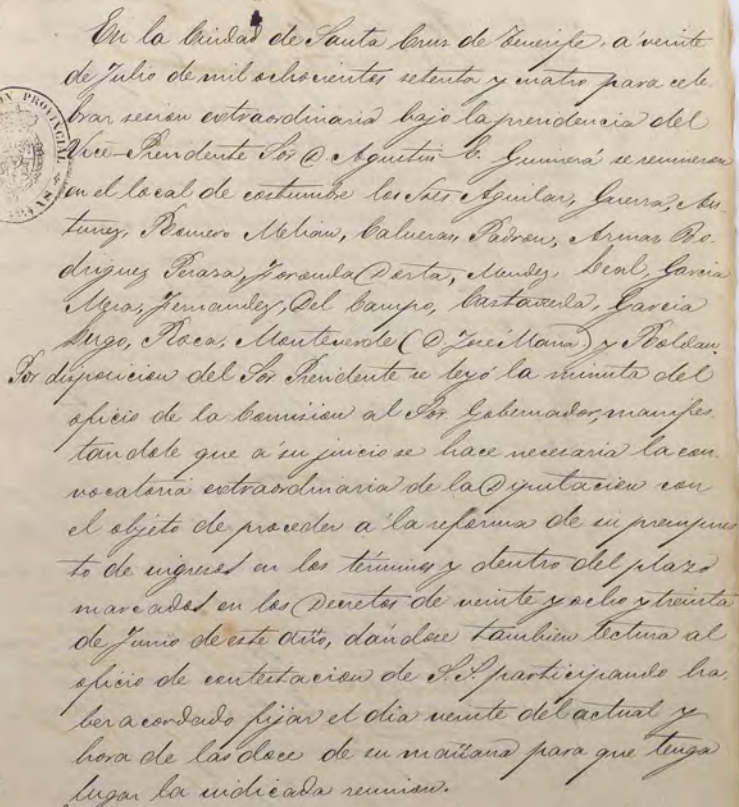 En la Ciudad de Santa Cruz de Tenerife, a veinte
de Julio de mil ochocientos setenta y cuatro para cele-
brar sesion extraordinaria bajo la presidencia del
Vice-Presidente Sor. D. Agustin E. Guimerá se reunieron
en el local de costumbre los Sres Aguilar, Guerra, An-
tunez, Romero Melian, Calveras, Padron, Armas Ro-
driguez Peraza, Foronda, Dorta, Mendez, Leal, Garcia
Mesa, Fernandez, Del Campo, Castañeda, Garcia
Lugo, Roca, Monteverde (D. José Maria) y Roldan.
Por disposicion del Sor. Presidente se leyó la minuta del
oficio de la Comision al Sor. Gobernador, manifes
tandole que a su juicio se hace necesaria la con-
vocatoria extraordinaria de la Diputacion con
el objeto de proceder a la reforma de su presupues
to de ingresos en los términos y dentro del plazo
marcados en los Decretos de veinte y ocho y treinta
de Junio de este año, dándose tambien lectura al
oficio de contestacion de S.S. participando ha-
ber acordado fijar el dia veinte del actual y
hora de las doce de su mañana para que tenga
lugar la indicada reunion.
PROVINCIAL